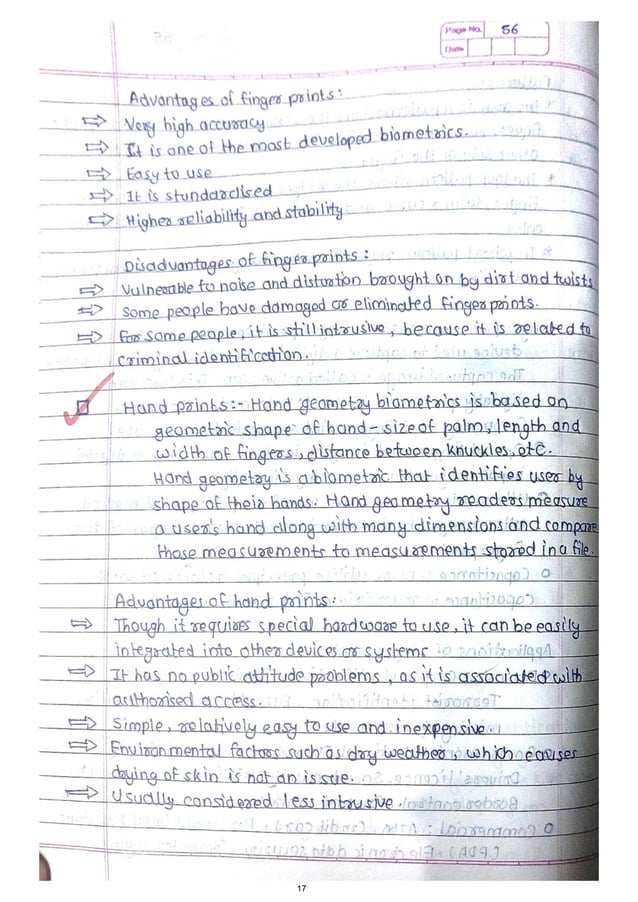 Page No. 56
Date
Advantages of finger prints:
⇒ Very high accuracy
⇒ It is one of the most developed biometrics.
⇒ Easy to use
⇒ It is stundardised
⇒ Higher reliability and stability
Disadvantages of finger prints:
⇒ Vulnerable to noise and distortion brought on by dirt and twists
⇒ Some people have damaged or eliminated finger prints.
⇒ For some people, it is still intrusive, because it is related to
criminal identification.
Hand prints:- Hand geometry biometrics is based on
geometric shape of hand - size of palm, length and
width of fingers, distance between knuckles, etc.
Hand geometry is a biometric that identifies user by
shape of their hands. Hand geometry readers measure
a user's hand along with many dimensions and compare
those measurements to measurements stored in a file.
Advantages of hand prints:
⇒ Though it requires special hardware to use, it can be easily
integrated into other devices or systems
⇒ It has no public attitude problems, as it is associated with
authorised access.
⇒ Simple, relatively easy to use and inexpensive
⇒ Environmental factors such as dry weather, which causes
drying of skin is not an issue.
⇒ Usually considered less intrusive.
17